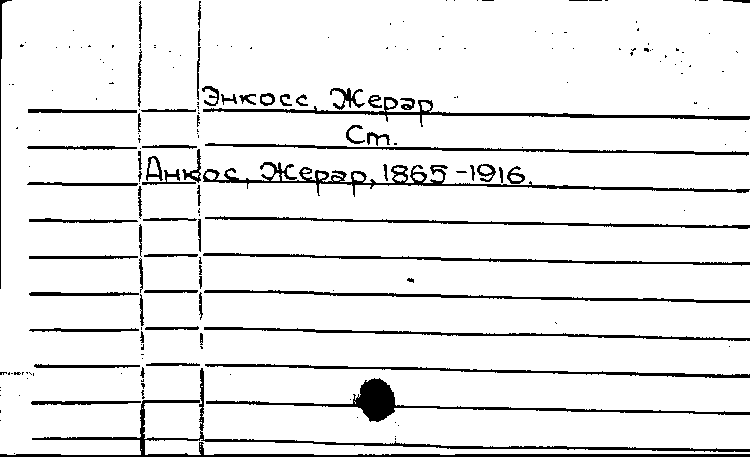 Энкосс, Жерар
Ст.
Анкос, Жерар, 1865-1916.